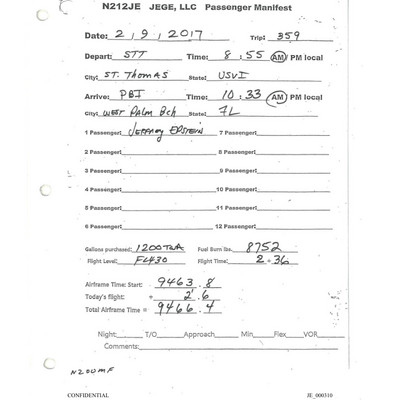 N212JE JEGE, LLC Passenger Manifest
Date: 2/9/2017 Trip: 359
Depart: STT Time: 8:55 AM PM local
City: ST. THOMAS State: USVI
Arrive: PBI Time: 10:33 AM PM local
City: WEST PALM Bch State: FL
1 Passenger: JEFFREY EPSTEIN 7 Passenger:
2 Passenger: 8 Passenger:
3 Passenger: 9 Passenger:
4 Passenger: 10 Passenger:
5 Passenger: 11 Passenger:
6 Passenger: 12 Passenger:
Gallons purchased: 1200 Fuel Burn lbs. 8752
Flight Level: FL430 Flight Time: 2+36
Airframe Time: Start: 9463.8
Today's flight: + 2.6
Total Airframe Time = 9466.4
Night: T/O Approach Min Flex VOR
Comments:
N200MF
CONFIDENTIAL JE_000310